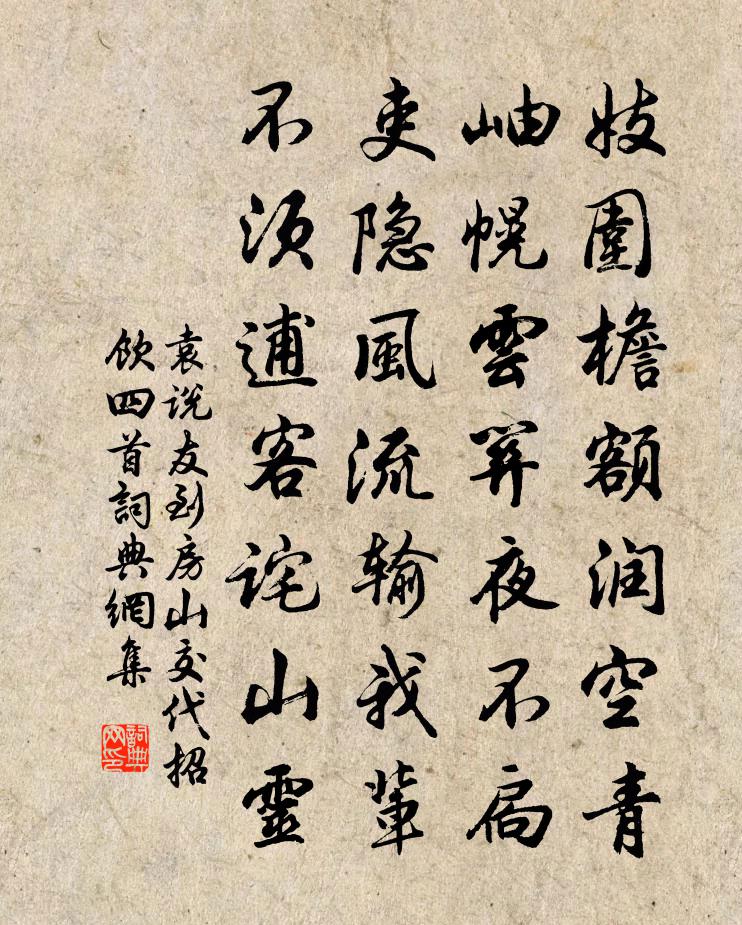 妓圍檐額润空青
岫幌雲關夜不扃
吏隐風流输我輩
不须逋客诧山靈
袁说友到房山交代招
飲四首詞典網集
詞典网印